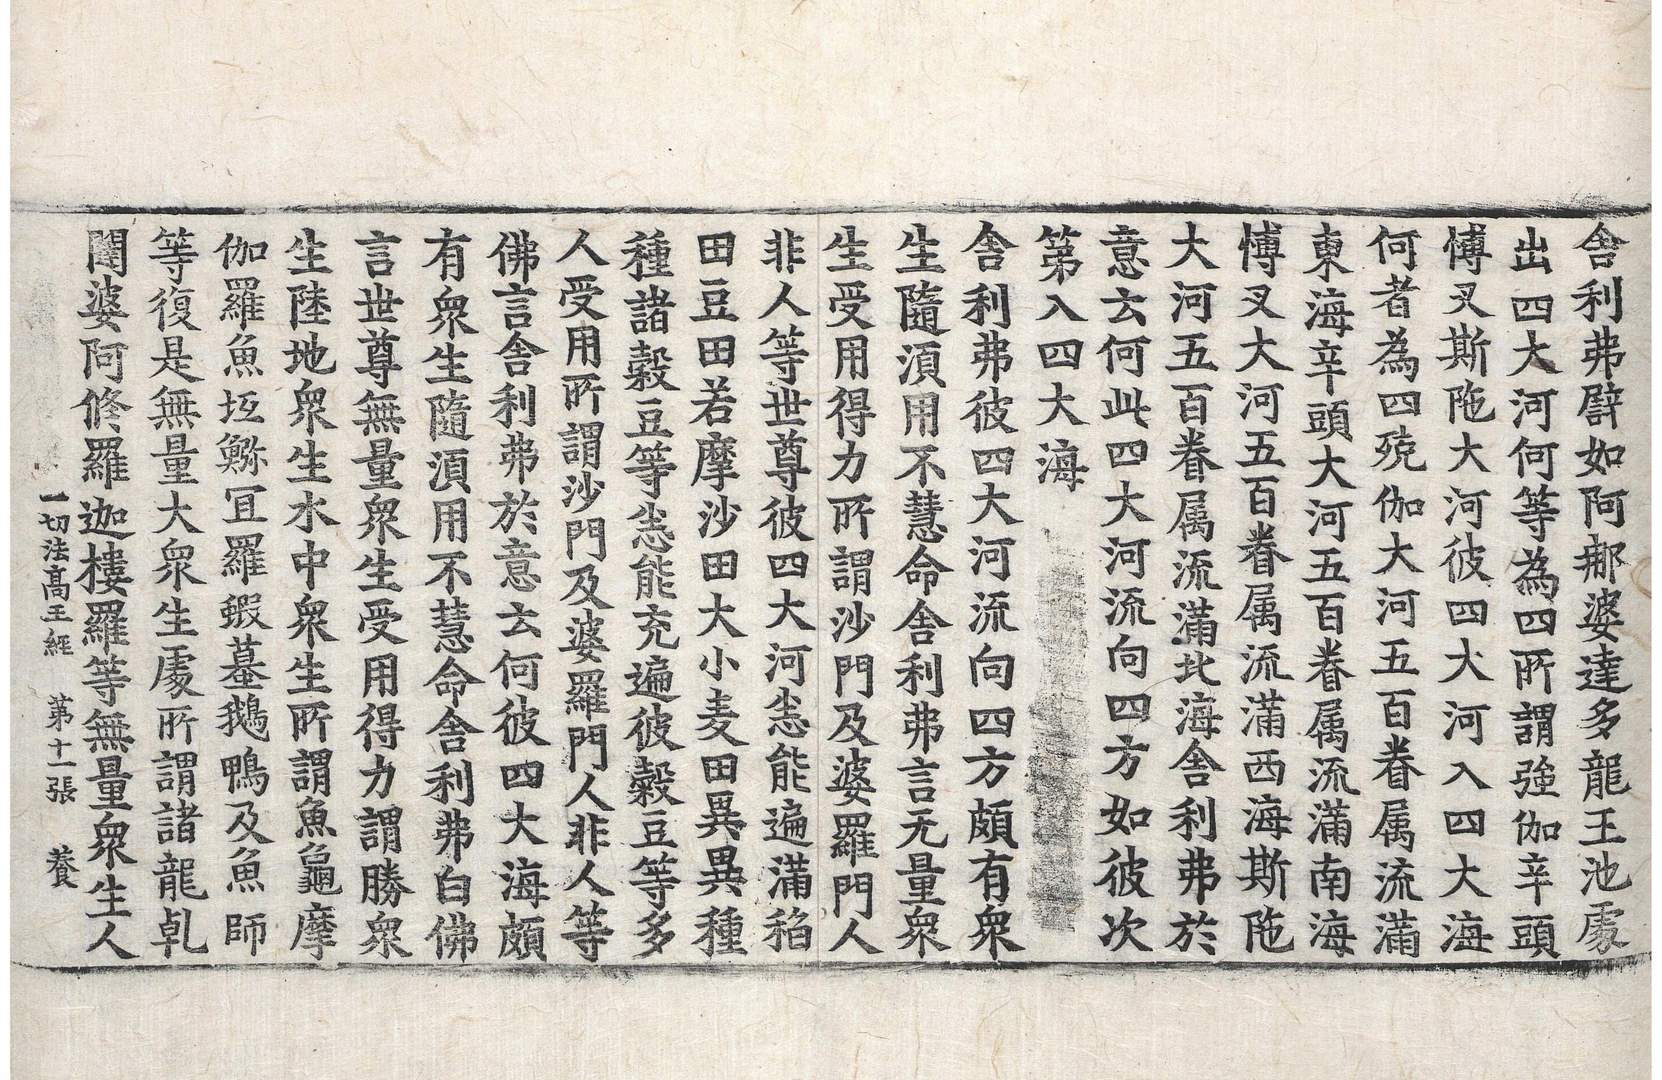 舎利弗譬如阿那婆達多龍王池處
出四大河何等為四所謂強伽辛頭
愽叉斯陁大河彼四大河入四大海
何者為四殑伽大河五百眷属流滿
東海辛頭大河五百眷属流滿南海
愽叉大河五百眷属流滿西海斯陁
大河五百眷属流滿北海舎利弗於
意云何此四大河流向四方如彼次
第入四大海
舎利弗彼四大河流向四方頗有衆
生隨湏用不慧命舎利弗言无量衆
生受用得力所謂沙門及婆羅門人
非人等世尊彼四大河悉能遍滿稻
田豆田若摩沙田大小麦田異異種
種諸糓豆等悉能充遍彼糓豆等多
人受用所謂沙門及婆羅門人非人等
佛言舎利弗於意云何彼四大海頗
有衆生隨湏用不慧命舎利弗白佛
言世尊無量衆生受用得力謂勝衆
生陸地衆生水中衆生所謂魚龜摩
伽羅魚坻鯬冝羅蝦蟇鵝鴨及魚師
等復是無量大衆生處所謂諸龍乹
闥婆阿修羅迦樓羅等無量衆生人
一切法高王經 第十一張 養